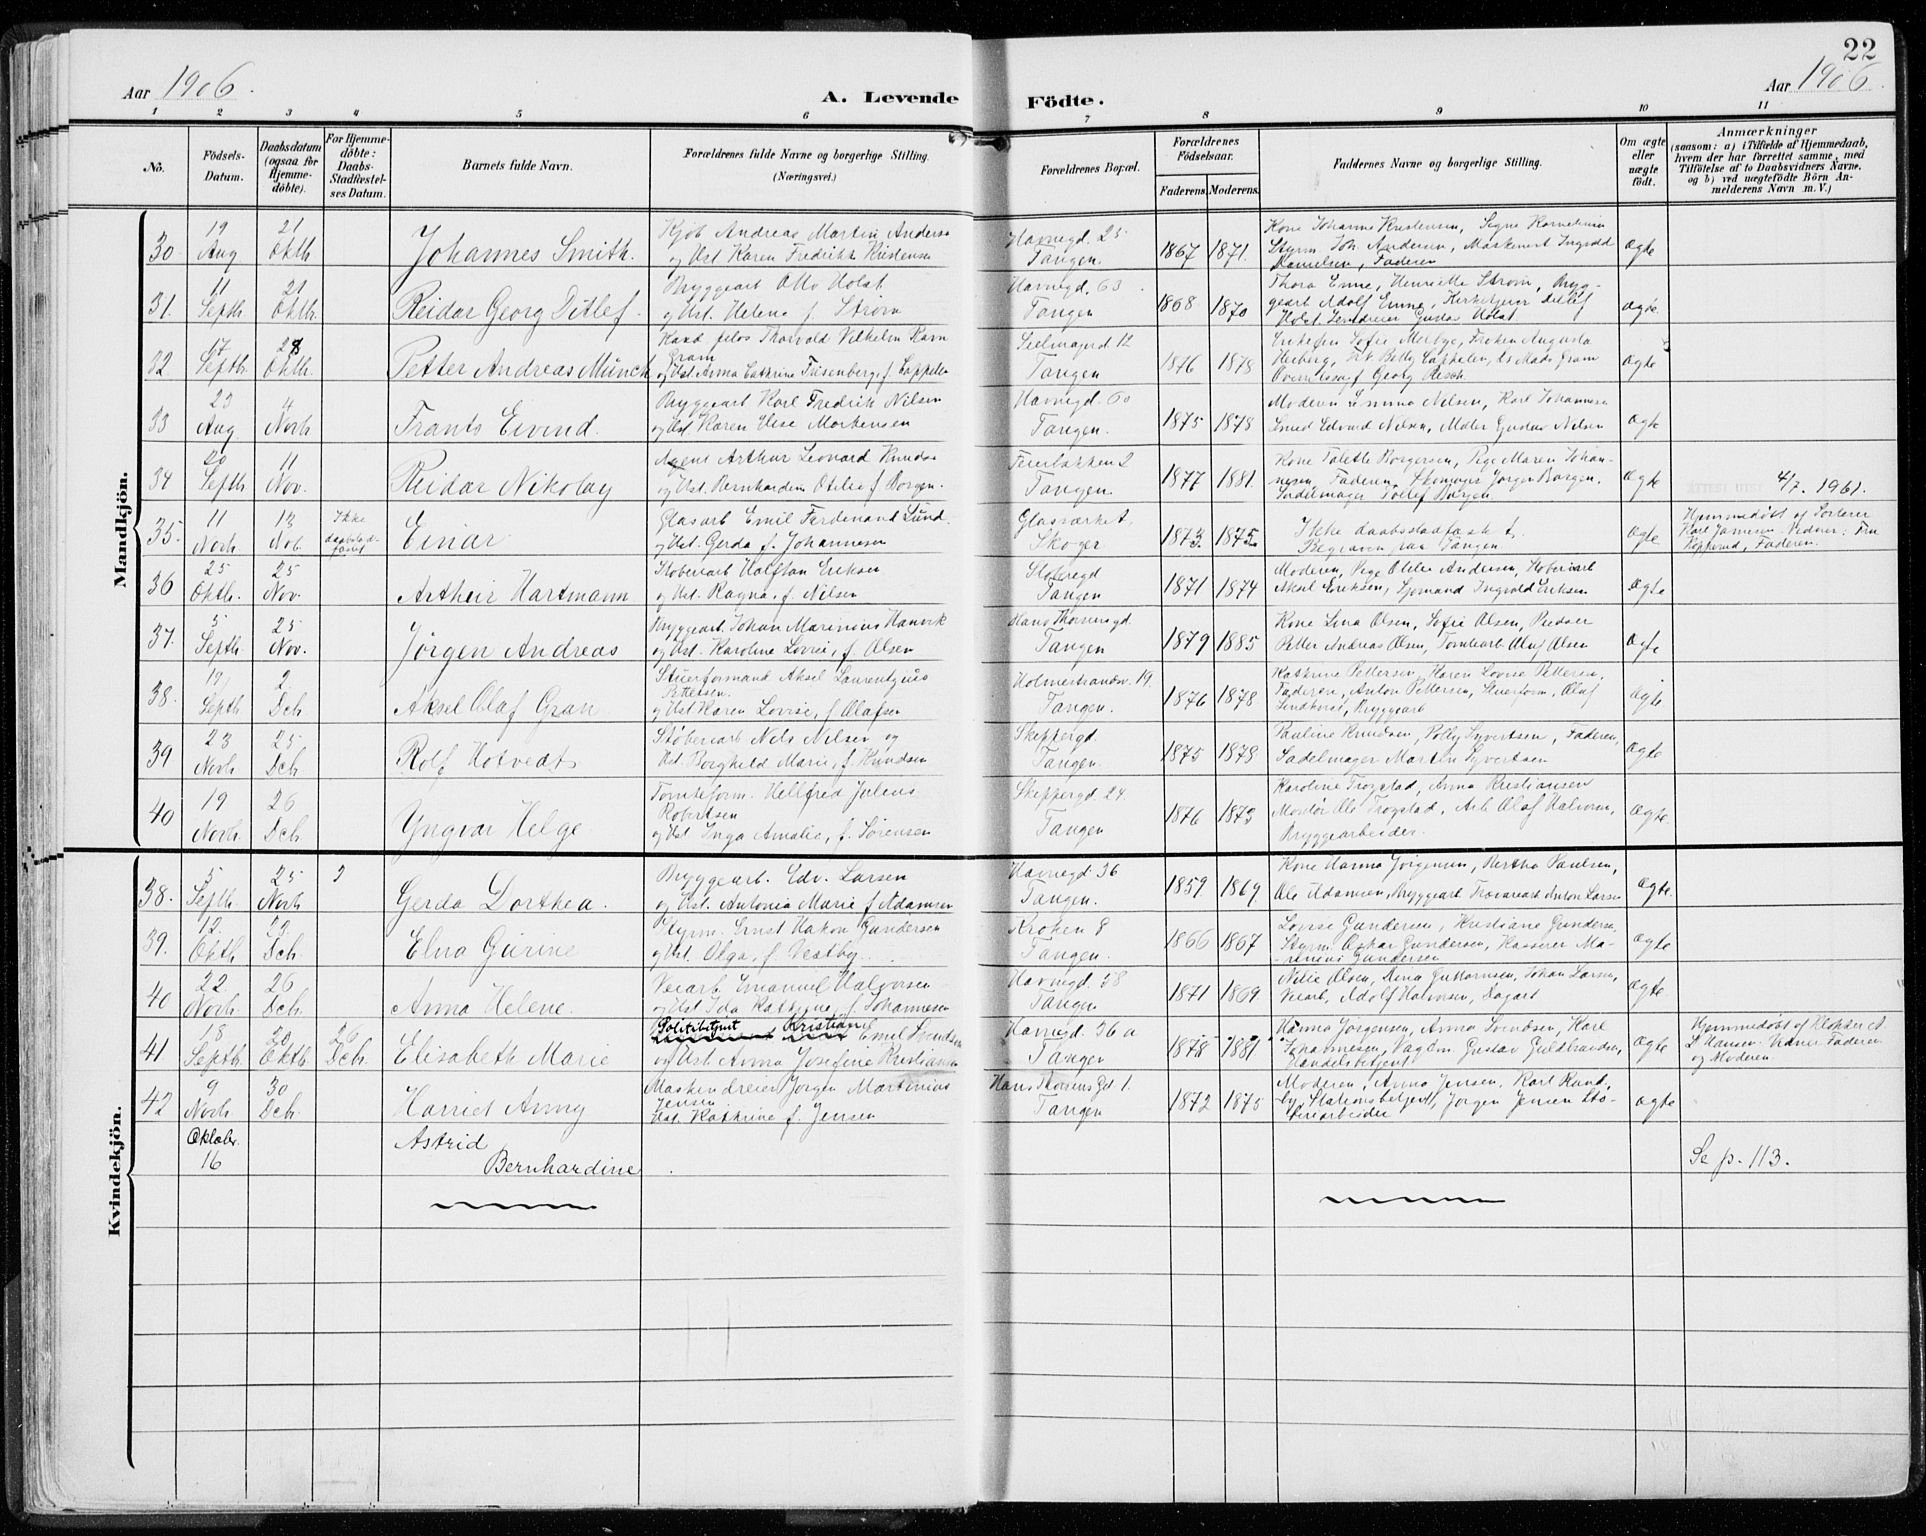 22
Aar 1906.
A. Levende Födte.
Aar 1906.
1 2 3 4 5 6 7 8 9 10 11
No.
Födsels-Datum.
Daabsdatum (ogsaa for Hjemme-döbte).
For Hjemme-döbte: Daabs-Stadfæstel-ses Datum.
Barnets fulde Navn.
Forældrenes fulde Navne og borgerlige Stilling. (Næringsvei.)
Forældrenes Bopæl.
Forældrenes Födselsaar.
Faderens. Moderens.
Faddernes Navne og borgerlige Stilling.
Om ægte eller uægte födt.
Anmærkninger
(saasom: a) i Tilfælde af Hjemmedaab, hvem der har forrettet samme, med Tilföielse af to Daabsvidners Navne. og b) ved uægtefödte Börn An-melderens Navn m. V.)
Mandkjön.
30 19 Aug 21 Oktb. Johannes Smith. Kjøb Andreas Martin Anderse og Ust Karen Fredrikke Kristensen Havnegd. 25 Tangen. 1867 1871. Kone Johanne Kristensen, Signe Kornelius Styrm Joh. Andersen, Maskinist Ingvald Danielsen, Faderen Ægte
31. 11 Septb. 21 Oktb. Reidar Georg Ditlef. Bryggearb Otto Holst og Ust. Helene f. Strøm Havnegd. 63 Tangen 1868 1870 Thora Enne, Henriette Strøm, Brygg-gearb Adolf Enne, Kirketjener Ditlef Holst, Gustav Holst ægte.
32 17 Septb. 28 Oktb. Petter Andreas Münch Kand filos Thorvald Vilhelm Ravn Gram og Ust. Anna Cathrine Frisenberg, f. Cappelen Tangen. 1876 1878 Sofie Melbye, Frøken Augusta Heiberg, Frk Betty Cappelen, Mads Gram Overretssagf Georg Resch. Ægte
33 23 Aug 4 Novb. Frants Eivind. Bryggearb Karl Fredrik Nilsen og Ust. Karen Elise Mortensen Havnegd. 60 Tangen. 1875 1878 Moderen Emma Nilsen, Karl Johannesen Smed Edvard Nilsen, Maler Gustav Nilsen Ægte
34 20 Septb. 11 Nov. Reidar Nikolay Agent Arthur Leonard Knudse og Ust. Bernhardine Otilie f. Borgen. Feierbakken 2 Tangen. 1877 1881 Kone Tolette Borgersen, Pige Maren Johan-nesen, Faderen, Skomager Jørgen Borgen, Sadelmager Tollef Borgen Ægte 4/7. 1961.
35. 11 Novb. 13 Nob. Ikke daabstad-fæstet Einar Glasarb Emil Ferdinand Lund. og Ust. Gerda f. Johannesen Glasværket, Skoger 1873. 1875. Ikke daabsstadfæstet. Begraven paa Tangen Ægte Hjemmedøbt af Sorterer Karl Jansen Vidner: Fru Kopperud, Faderen.
36 25 Oktb. 25 Nov. Artheir Hartmann Støberiarb Halfdan Eriksen og Ust. Ragna, f. Nilsen Støberigd Tangen 1871 1874 Moderen, Pige Otilie Andersen, Støberiarb Aksel Eriksen, Sjømand Ingvold Eriksen Ægte
37. 5 Septb. 25 Nov. Jørgen Andreas Bryggearb. Johan Marinius Hanvik og Ust. Karoline Lovise, f. Olsen Hans Thornesgd Tangen 1879 1885 Kone Lina Olsen, Sofie Olsen, Presser Petter Andreas Olsen, Tomtearb Olaf Olsen Ægte
38. 12 Septb 2 Dcb. Aksel Olaf Gran Stuerformand Aksel Laurentzius Pettersen. og Ust Karen Lovise, f Olafsen Holmestrandsv. 19. Tangen. 1876 1878 Kathrine Pettersen, Karen Lovise Pettersen, Faderen, Anton Pettersen, Stuerform, Olaf Lindkvist, Bryggearb Ægte
39 23 Novb. 25 Dcb. Rolf Hotvedt Støberiarb Nils Nilsen og Ust. Borghild Marie, f. Knudsen Skippergd Tangen. 1875 1878 Pauline Knudsen, Polly Syvertsen, Faderen, Sadelmager Martin Syvertsen Ægte
40 19 Novb. 26 Dcb. Yngvar Helge Tomteform. Hellfred Julius Robertsen og Ust Inga Amalie, f. Sørensen Skippergd. 24 Tangen 1876 1873 Karoline Trogstad, Anna Kristiansen Montør Ole Trogstad, Arb Olaf Halvorsen, Bryggearbeider. Ægte.
Kvindekjön.
38. 5 Septb. 25 Novb Gerda Dorthea. Bryggearb. Edv. Larsen og Ust. Antonia Marie f Adamsen Havnegd. 36 Tangen. 1859 1869 Kone Hanna Jørgensen, Bertha Paulsen, Ole Adamsen, Bryggearb Anton Larsen Ægte.
39. 12. Oktb 23 Dcb. Elna Gurine Styrm. Ernst Hakon Gundersen og Ust. Olga, f. Vestby. Kroken 8 Tangen. 1866 1867 Lovise Gundersen, Kristiane Gundersen, Styrm. Oskar Gundersen, Kasserer Ma-renius Gundersen Ægte
40 22 Novb. 26 Dcb. Anna Helene. Veiarb Emanuel Halvorsen og Ust Ida Kathrine, f. Johannesen Havnegd. 58 Tangen 1871 1869 Nilie Olsen, Anna Guttormsen, Johan Larsen, Veiarb, Adolf Halvorsen, Dagarb Ægte.
41 18 Septb. 20 Oktb. 26 Dcb. Elisabeth Marie Politibetjent Kristian Emil Svendsen og Ust Anna Josefine Kristiansen Havnegd. 36 a Tangen 1878 1881 Hanna Jørgensen, Anna Svendsen, Karl Johannesen, Gustav Guldbrandsen, Handelsbetjent Ægte Hjemmedøbt af Klokker A. L Hansen. Vidner Faderen og Moderen.
42 9 Novb. 30 Dcb. Harriet Anny Maskindreier Jørgen Martinius Jensen Ust. Kathrine f. Jensen Hans Thornes Gd. 1. Tangen 1872 1875 Moderen, Anna Jensen, Karl Rund-by, Stationsbetjent, Jørgen Jensen Stø-beriarbeider Ægte
Oktober 16 Astrid Bernhardine Se p. 113.